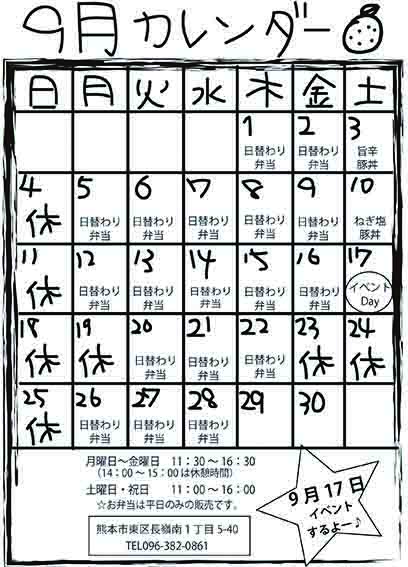 9月カレンダー
日 月 火 水 木 金 土
1 2 3
日替わり 日替わり 旨辛
弁当 弁当 豚丼
4 5 6 7 8 9 10
休 日替わり 日替わり 日替わり 日替わり 日替わり ねぎ塩
弁当 弁当 弁当 弁当 弁当 豚丼
11 12 13 14 15 16 17
休 日替わり 日替わり 日替わり 日替わり 日替わり イベント
弁当 弁当 弁当 弁当 弁当 Day
18 19 20 21 22 23 24
休 休 日替わり 日替わり 日替わり 休 休
弁当 弁当 弁当
25 26 27 28 29 30
休 日替わり 日替わり 日替わり
弁当 弁当 弁当
月曜日～金曜日 11:30～16:30
(14:00～15:00は休憩時間)
土曜日・祝日 11:00～16:00
☆お弁当は平日のみの販売です。
熊本市東区長嶺南1丁目5-40
TEL096-382-0861
9月17日
イベント
するよー♪